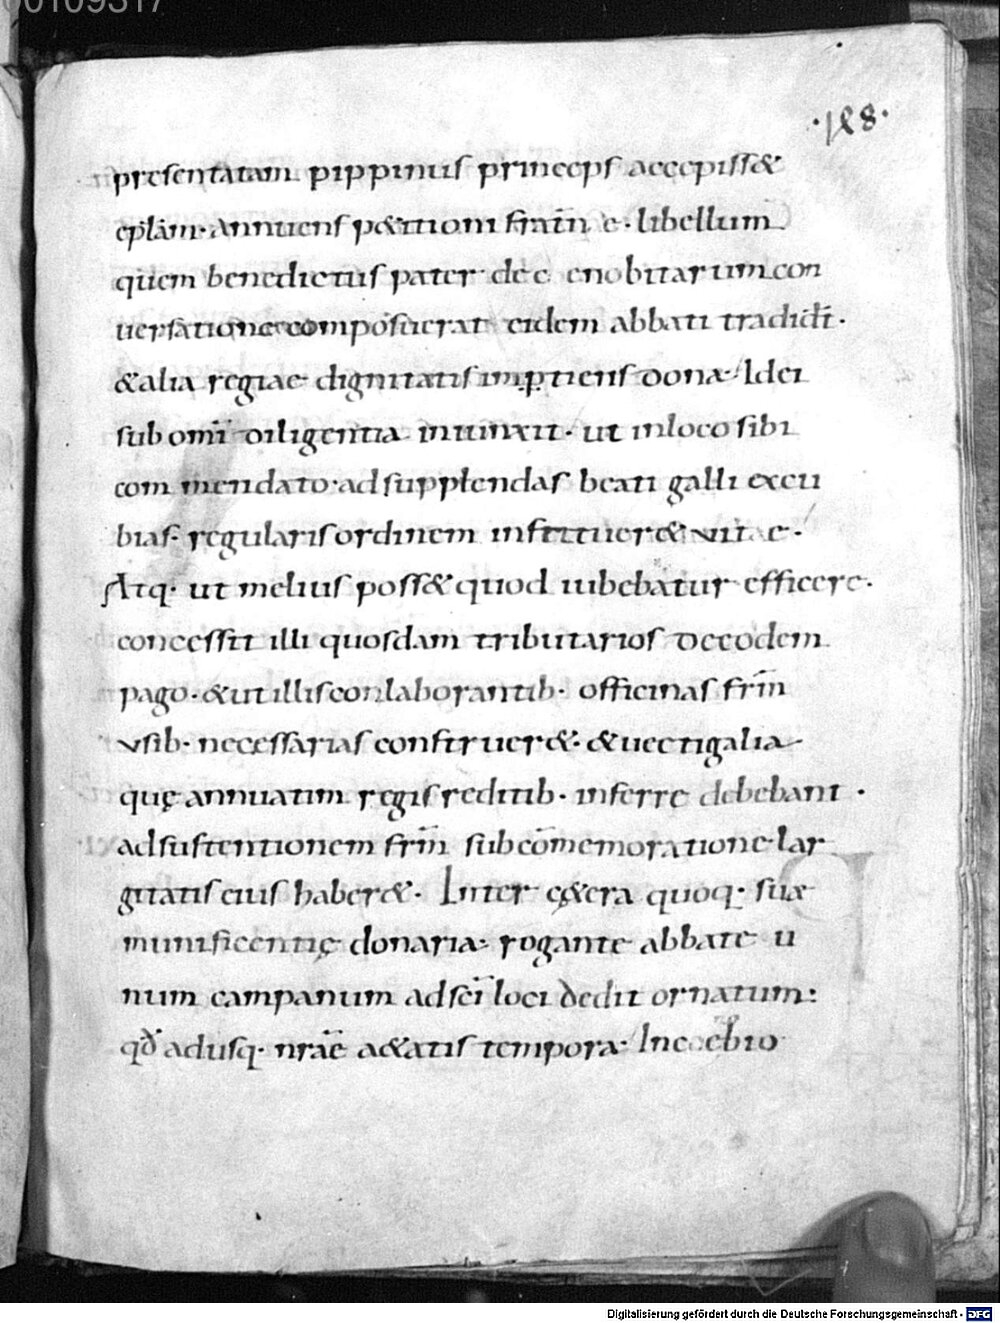 00109317
·188·
presentatam pippinus princeps accepiss&
eplãm· Annuens p&itioni fratrū e· libellum
quem benedictus pater de c enobitarum con
uersatione composuerat eidem abbati tradidit̄·
&alia regiae dignitatis impertiens dona Idei
sub omī diligentia iniunxit· ut inloco sibi
com mendato· ad supplendas beati galli excu
bias· regularis ordinem institueret& vitae·
Atq· ut melius poss& quod iubebatur efficere·
concessit illi quosdam tributarios deeodem
pago· &ut illis conlaborantib· officinas frm̄
vsib· necessarias constru er&· &uectigalia
quę annuatim regis reditib· inferre debebant·
ad sustentionem frm̄ sub com̄emoratione lar
gitatis eius haber&· Inter c&era quoq· suæ
munificentię donaria· rogante abbate u
num campanum ad sc̄i loci dedit ornatum:
qđ adusq· nrāe a&atis tempora· In cębro
Digitalisierung gefördert durch die Deutsche Forschungsgemeinschaft - DFG